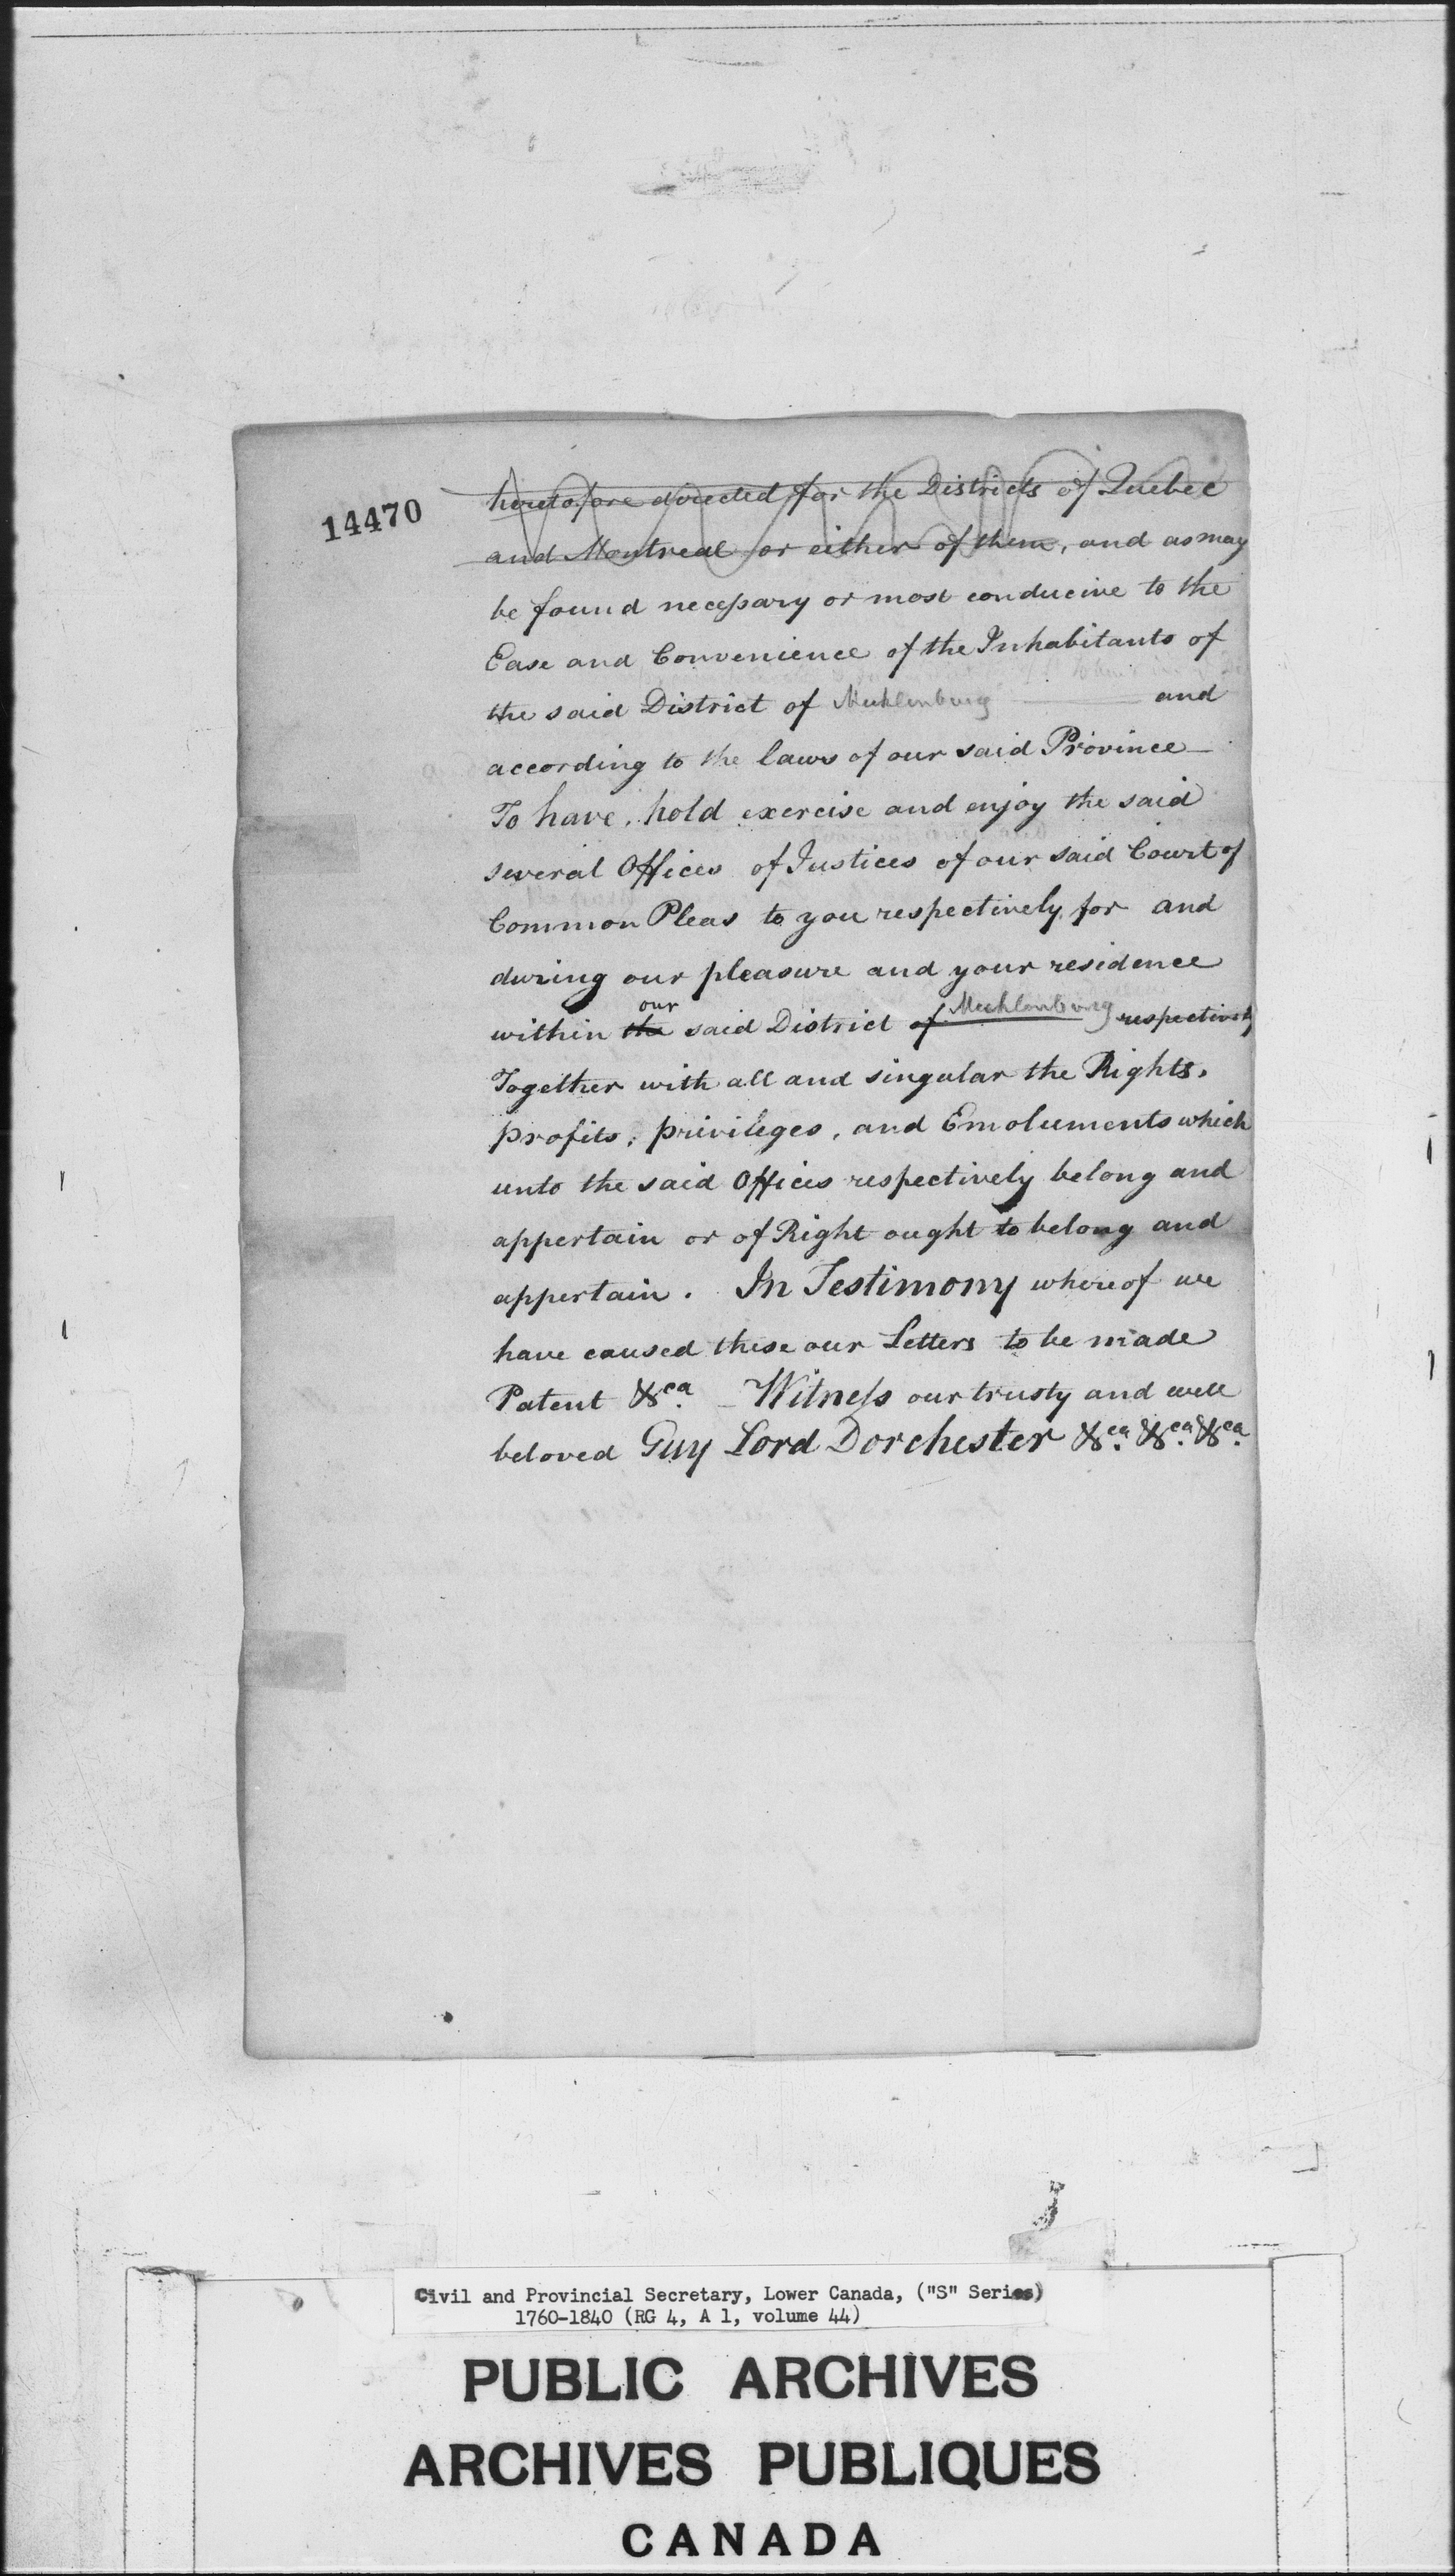 14470
heretofore directed for the Districts of Quebec
and Montreal or either of them, and as may
be found necessary or most conducive to the
Ease and Convenience of the Inhabitants of
the said District of Mecklenburg and
according to the laws of our said Province
To have, hold exercise and enjoy the said
several Offices of Justices of our said Court of
Common Pleas to you respectively, for and
during our pleasure and your residence
within the our said District of Mecklenburg respectively
Together with all and singular the Rights,
profits, privileges, and Emoluments which
unto the said Offices respectively belong and
appertain or of Right ought to belong and
appertain. In Testimony whereof we
have caused these our Letters to be made
Patent &ca. Witness our trusty and well
beloved Guy Lord Dorchester &ca. &ca. &ca.
Civil and Provincial Secretary, Lower Canada, ("S" Series)
1760-1840 (RG 4, A 1, volume 44)
PUBLIC ARCHIVES
ARCHIVES PUBLIQUES
CANADA